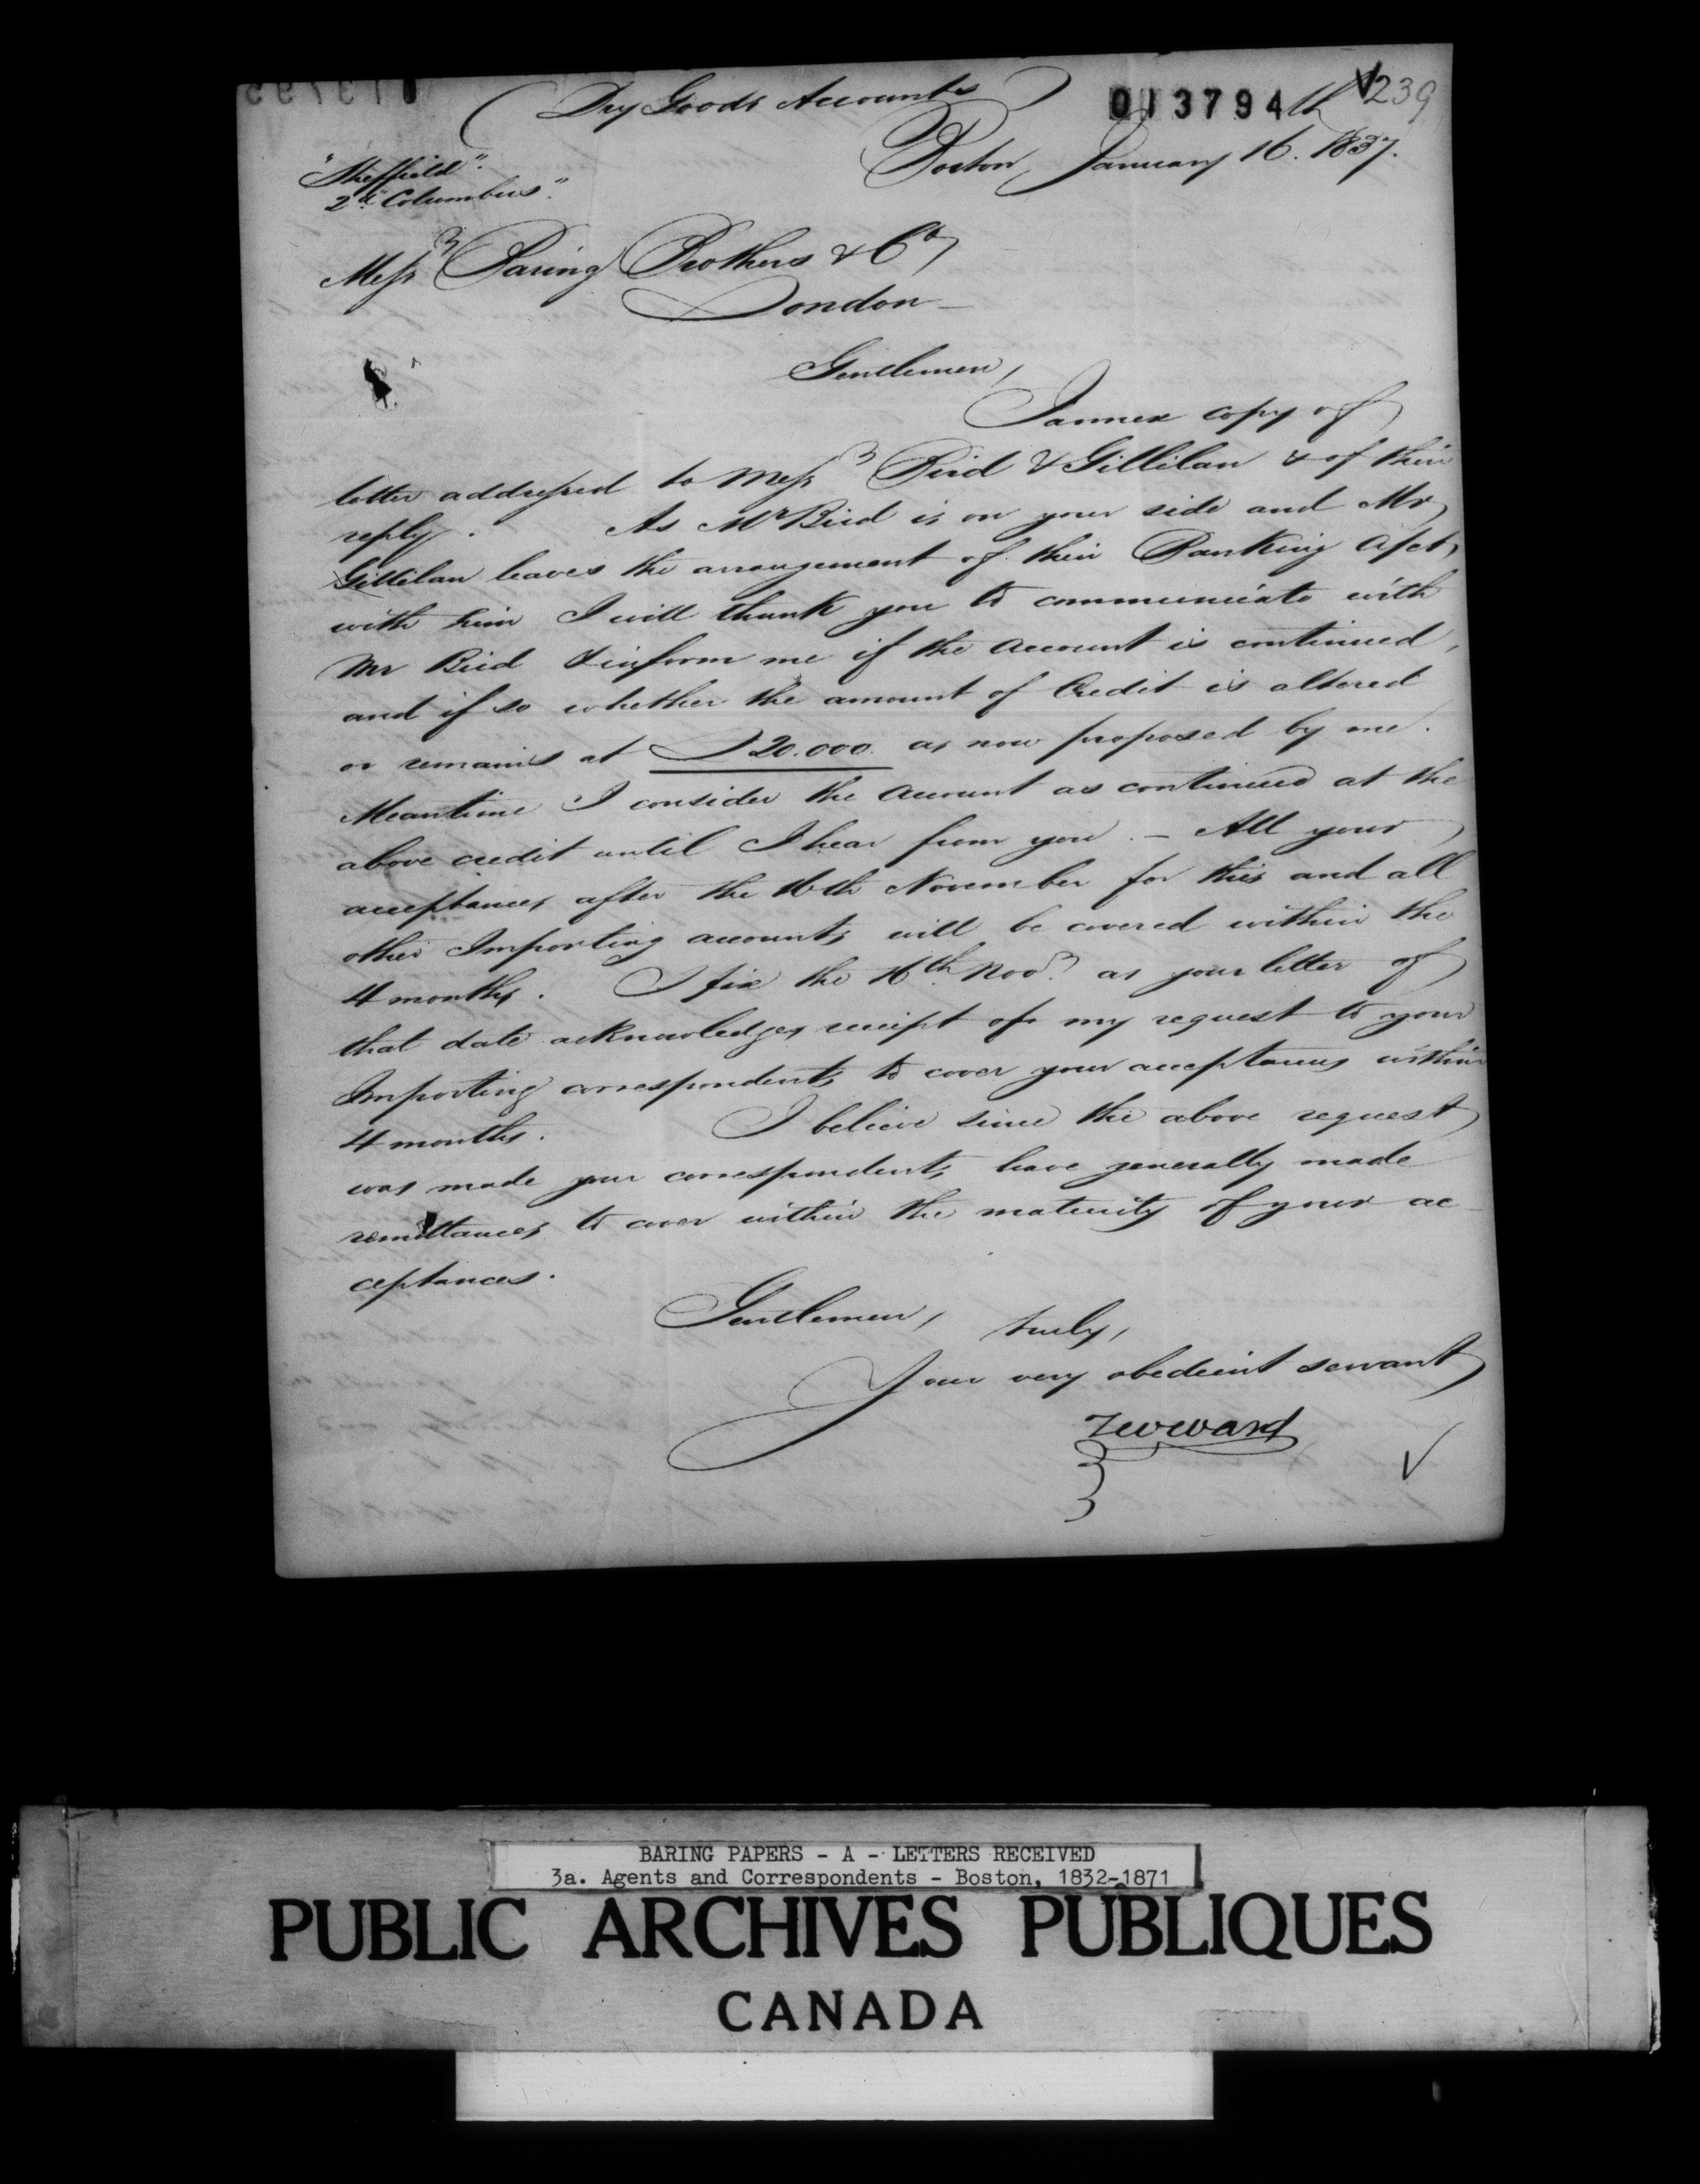 013794
239
(Dry Goods Accounts)
Boston January 16th. 1837.
"Sheffield".
2d "Columbus".
Messrs Baring Brothers & Co,
London
Gentlemen,
I annex copy of
letter addressed to Messrs Bird & Gillilan & of their
reply. As Mr Bird is on your side and Mr
Gillilan leaves the arrangement of their Banking
with him I will thank you to communicate with
Mr Bird & inform me if the Account is continued,
and if so whether the amount of Credit is altered
or remains at £20.000 as now proposed by me.
Meantime I consider the Account as continued at the
above credit until I hear from you. - All your
acceptances after the 16th November for this and all
other Importing accounts will be covered within the
4 months. I fix the 16th. Nov. as your letter of
that date acknowledges receipt of my request to your
Importing correspondents to cover your acceptances within
4 months. I believe since the above request
was made your correspondents have generally made
remittances to cover within the maturity of your ac
ceptances.
Gentlemen, truly,
Your very obedient servant
TWWard
BARING PAPERS - A - LETTERS RECEIVED
3a. Agents and Correspondents - Boston, 1832-1871
PUBLIC ARCHIVES PUBLIQUES
CANADA